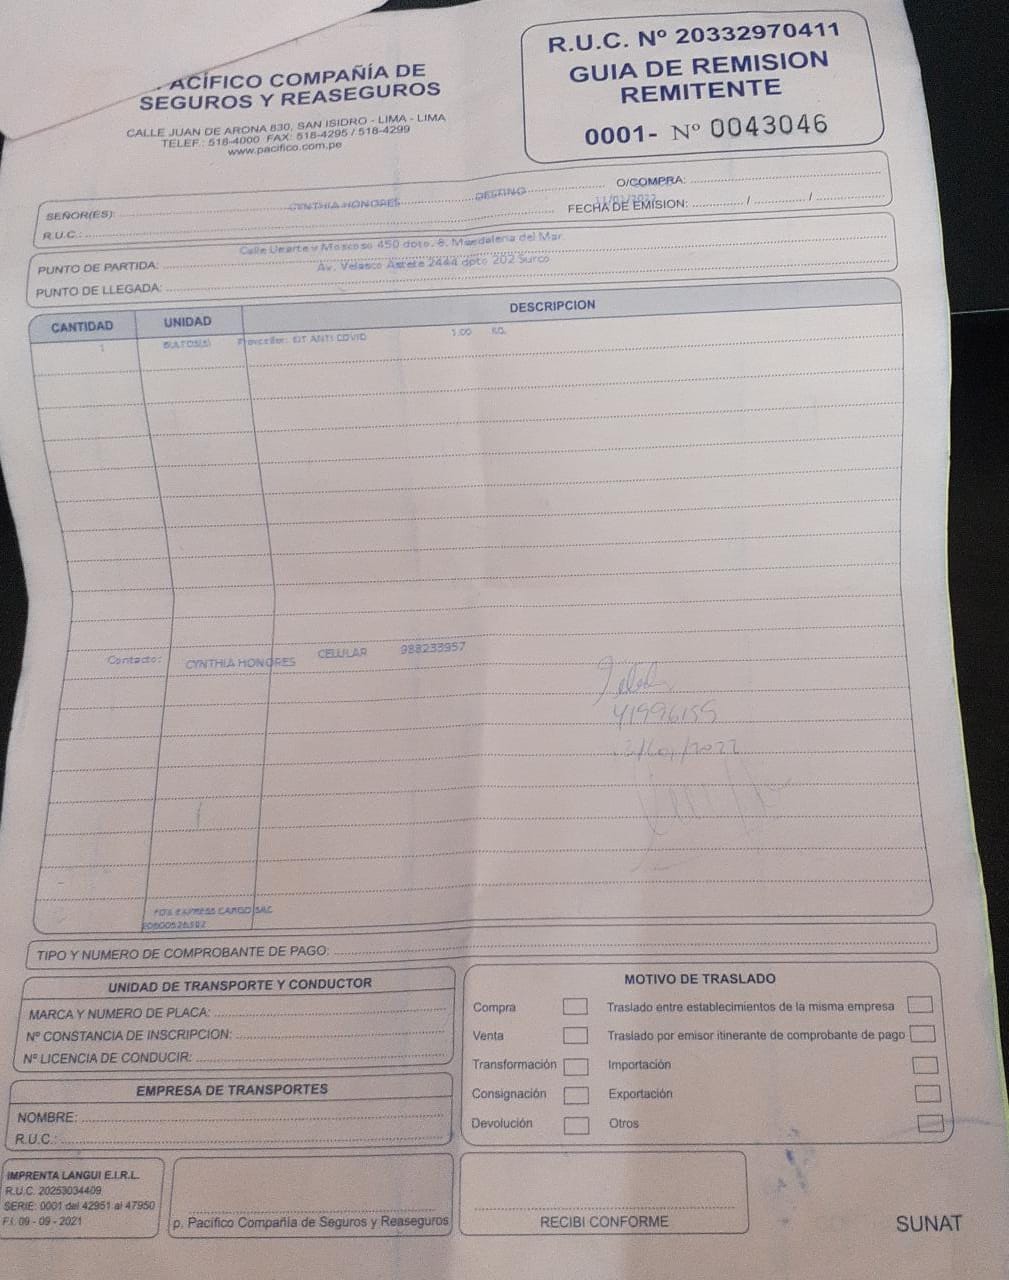 ACÍFICO COMPAÑÍA DE
SEGUROS Y REASEGUROS
CALLE JUAN DE ARONA 830, SAN ISIDRO - LIMA - LIMA
TELEF.: 518-4000 FAX: 518-4295 / 518-4299
www.pacifico.com.pe
R.U.C. Nº 20332970411
GUIA DE REMISION
REMITENTE
0001- Nº 0043046
SEÑOR(ES): CYNTHIA HONORES DESTINO
O/COMPRA:
R.U.C.:
FECHA DE EMISION: 11/01/2022 / /
PUNTO DE PARTIDA: Calle Ugarte y Moscoso 450 dpto. 8, Magdalena del Mar
PUNTO DE LLEGADA: Av. Velasco Astete 2444 dpto 202 Surco
CANTIDAD UNIDAD DESCRIPCION
1 BULTOS(S) KIT ANTI COVID 1.00 KG.
Contacto: CYNTHIA HONORES CELULAR 988233957
41996159
12/01/2022
EXPRESS CARGO SAC
TIPO Y NUMERO DE COMPROBANTE DE PAGO:
UNIDAD DE TRANSPORTE Y CONDUCTOR
MARCA Y NUMERO DE PLACA:
Nº CONSTANCIA DE INSCRIPCION:
Nº LICENCIA DE CONDUCIR:
EMPRESA DE TRANSPORTES
NOMBRE:
R.U.C.:
MOTIVO DE TRASLADO
Compra Traslado entre establecimientos de la misma empresa
Venta Traslado por emisor itinerante de comprobante de pago
Transformación Importación
Consignación Exportación
Devolución Otros
IMPRENTA LANGUI E.I.R.L.
R.U.C. 20253034409
SERIE: 0001 del 42951 al 47950
F.I. 09 - 09 - 2021
p. Pacífico Compañia de Seguros y Reaseguros
RECIBI CONFORME
SUNAT